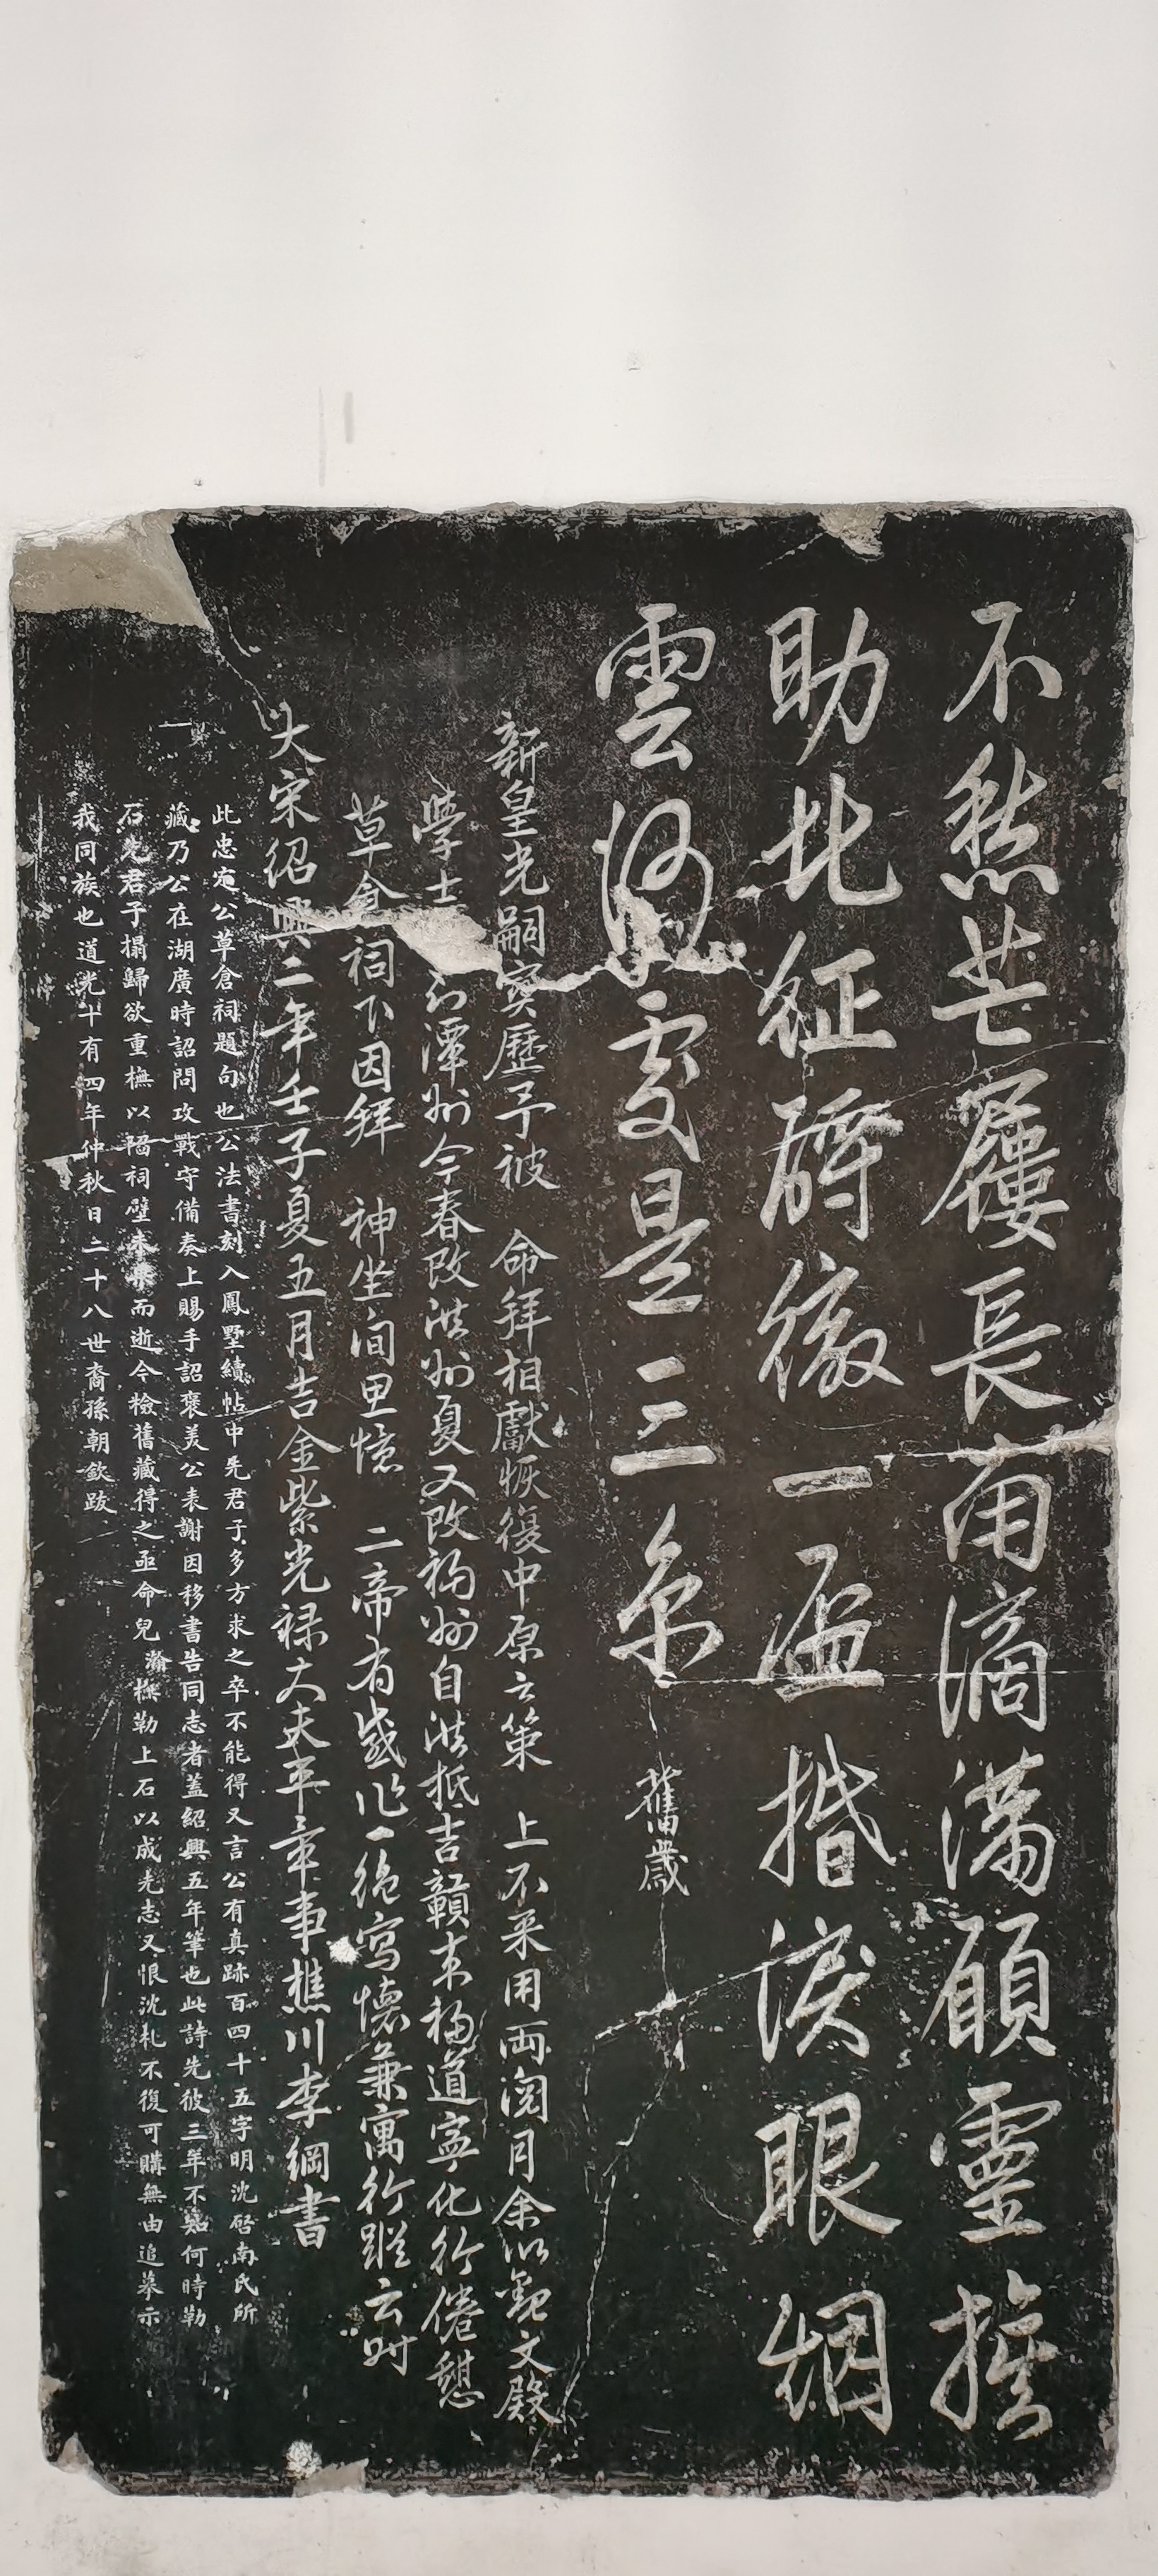 不愁芒屨長南滴滿願靈旗
助北征酹徹一卮揩淚眼烟
雲何處是三京
舊歲
新皇光嗣寶歷予被 命拜相獻恢復中原之策 上不采用兩閱月余以觀文殿
學士 潭州今春改洪州夏又改福州自洪抵吉贛來福道寧化行倦憩
草倉祠下因拜 神坐間思憶 二帝有感作一絕寫懷兼寓行蹤云時
大宋紹興二年壬子夏五月吉金紫光祿大夫平章事樵川李綱書
此忠定公草倉祠題句也公法書刻入鳳墅續帖中先君子多方求之卒不能得又言公有真跡百四十五字明沈啓南氏所
藏乃公在湖廣時詔問攻戰守備奏上賜手詔褒美公表謝因移書告同志者蓋紹興五年筆也此詩先彼三年不知何時勒
石先君子搨歸欲重橅以嵌祠壁未果而逝今檢舊藏得之亟命兒瀚橅勒上石以成先志又恨沈札不復可購無由追摹示
我同族也道光十有四年仲秋日二十八世裔孫朝欽跋